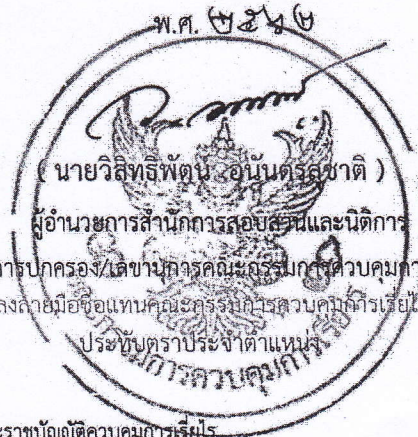 พ.ศ. ๒๕๖๒
( นายวิสิทธิพัฒน์ อนันตรสุชาติ )
ผู้อำนวยการสำนักการสอบสวนและนิติการ
การปกครอง/เลขานุการคณะกรรมการควบคุมกา
ลงลายมือชื่อแทนคณะกรรมการควบคุมการเรี่ยไร
ประทับตราประจำตำแหน่ง
กรรมการควบคุมการเรี่ยไร
ะราชบัญญัติควบคุมการเรี่ยไร